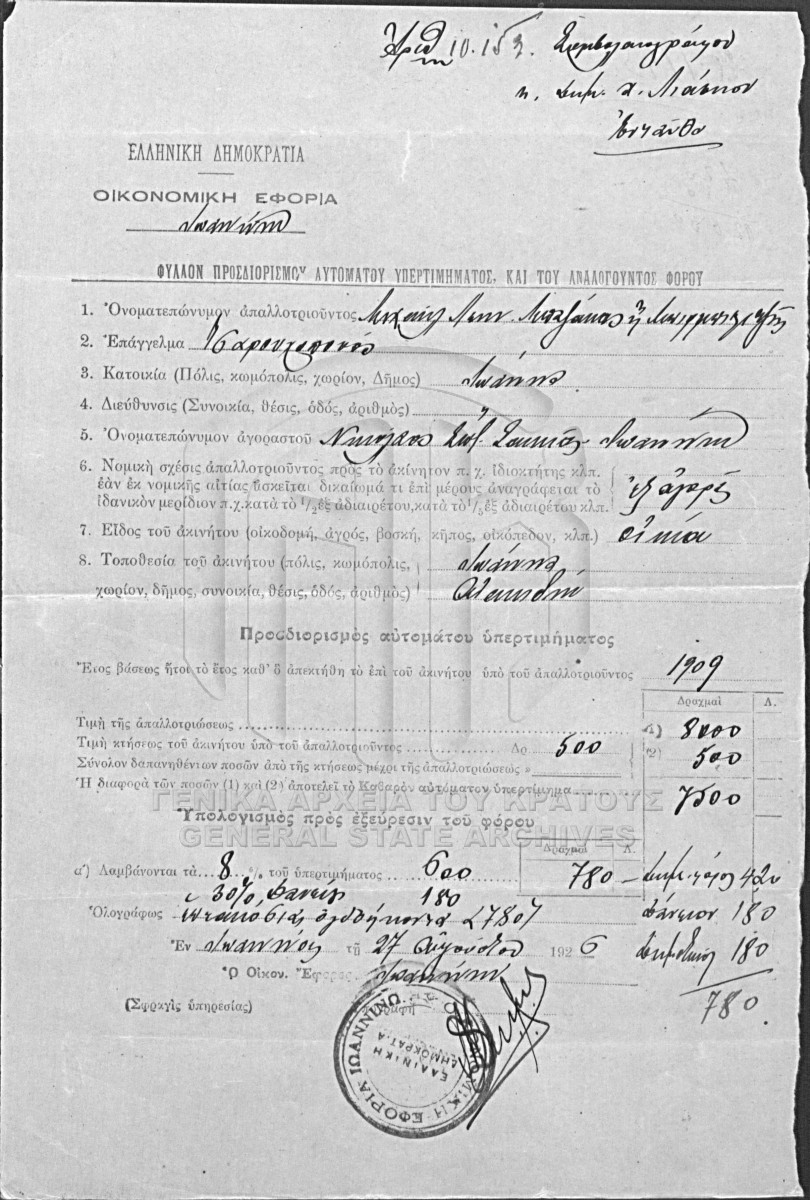 Ἀριθ 10.153. Συμβολαιογράφον
κ. Δημ.
Ἐνταῦθα
ΕΛΛΗΝΙΚΗ ΔΗΜΟΚΡΑΤΙΑ
ΟΙΚΟΝΟΜΙΚΗ ΕΦΟΡΙΑ
ΦΥΛΛΟΝ ΠΡΟΣΔΙΟΡΙΣΜΟΥ ΑΥΤΟΜΑΤΟΥ ΥΠΕΡΤΙΜΗΜΑΤΟΣ, ΚΑΙ ΤΟΥ ΑΝΑΛΟΓΟΥΝΤΟΣ ΦΟΡΟΥ
1. Ὀνοματεπώνυμον ἀπαλλοτριοῦντος Μιχαὴλ
2. Ἐπάγγελμα
3. Κατοικία (Πόλις, κωμόπολις, χωρίον, Δῆμος) Ἰωάννινα
4. Διεύθυνσις (Συνοικία, θέσις, ὁδός, ἀριθμὸς) "
5. Ὀνοματεπώνυμον ἀγοραστοῦ Νικόλαος
6. Νομικὴ σχέσις ἀπαλλοτριοῦντος πρὸς τὸ ἀκίνητον π. χ. ἰδιοκτήτης κλπ.
ἐὰν ἐκ νομικῆς αἰτίας ἀσκεῖται δικαίωμά τι ἐπὶ μέρους ἀναγράφεται τὸ
ἰδανικὸν μερίδιον π.χ. κατὰ τὸ 1/2 ἐξ ἀδιαιρέτου, κατὰ τὸ 1/5 ἐξ ἀδιαιρέτου κλπ. ἐξ ἀγορᾶς
7. Εἶδος τοῦ ἀκινήτου (οἰκοδομή, ἀγρός, βοσκή, κῆπος, οἰκόπεδον, κλπ.) οἰκία
8. Τοποθεσία τοῦ ἀκινήτου (πόλις, κωμόπολις, Ἰωάννινα
χωρίον, δῆμος, συνοικία, θέσις, ὁδός, ἀριθμὸς)
Προσδιορισμὸς αὐτομάτου ὑπερτιμήματος
Ἔτος βάσεως ἤτοι τὸ ἔτος καθ' ὃ ἀπεκτήθη τὸ ἐπὶ τοῦ ἀκινήτου ὑπὸ τοῦ ἀπαλλοτριοῦντος 1909
Δραχμαὶ Λ.
Τιμὴ τῆς ἀπαλλοτριώσεως (1) 8000
Τιμὴ κτήσεως τοῦ ἀκινήτου ὑπὸ τοῦ ἀπαλλοτριοῦντος Δρ. 500 (2) 500
Σύνολον δαπανηθέντων ποσῶν ἀπὸ τῆς κτήσεως μέχρι τῆς ἀπαλλοτριώσεως »
Ἡ διαφορὰ τῶν ποσῶν (1) καὶ (2) ἀποτελεῖ τὸ Καθαρὸν αὐτόματον ὑπερτίμημα 7500
ΓΕΝΙΚΑ ΑΡΧΕΙΑ ΤΟΥ ΚΡΑΤΟΥΣ
Ὑπολογισμὸς πρὸς ἐξεύρεσιν τοῦ φόρου
GENERAL STATE ARCHIVES
Δραχμαὶ Λ.
α') Λαμβάνονται τὰ 8 % τοῦ ὑπερτιμήματος 600 780 420
30% 180
Ὁλογράφως ἑπτακόσιαι ὀγδοήκοντα (780) 180
Ἐν Ἰωαννίνοις τῇ 27 Αὐγούστου 1926 180
Ὁ Οἰκον. Ἔφορος
780
(Σφραγὶς ὑπηρεσίας)
ΟΙΚΟΝΟΜΙΚΗ ΕΦΟΡΙΑ ΙΩΑΝΝΙΝΩΝ
ΕΛΛΗΝΙΚΗ
ΔΗΜΟΚΡΑΤΙΑ